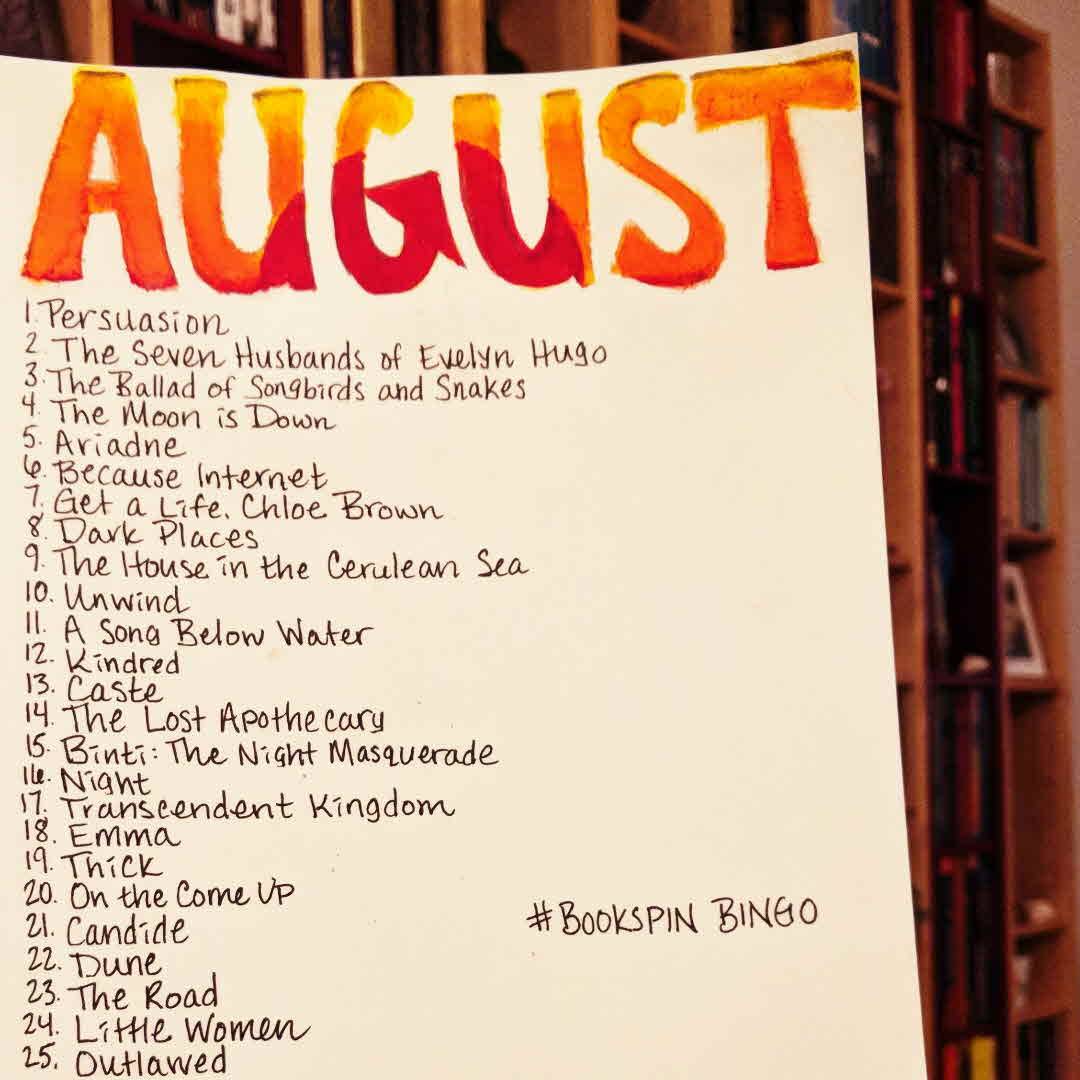 AUGUST
1. Persuasion
2. The Seven Husbands of Evelyn Hugo
3. The Ballad of Songbirds and Snakes
4. The Moon is Down
5. Ariadne
6. Because Internet
7. Get a Life, Chloe Brown
8. Dark Places
9. The House in the Cerulean Sea
10. Unwind
11. A Song Below Water
12. Kindred
13. Caste
14. The Lost Apothecary
15. Binti: The Night Masquerade
16. Night
17. Transcendent Kingdom
18. Emma
19. Thick
20. On the Come Up
21. Candide
22. Dune
23. The Road
24. Little Women
25. Outlawed
#BOOKSPIN BINGO